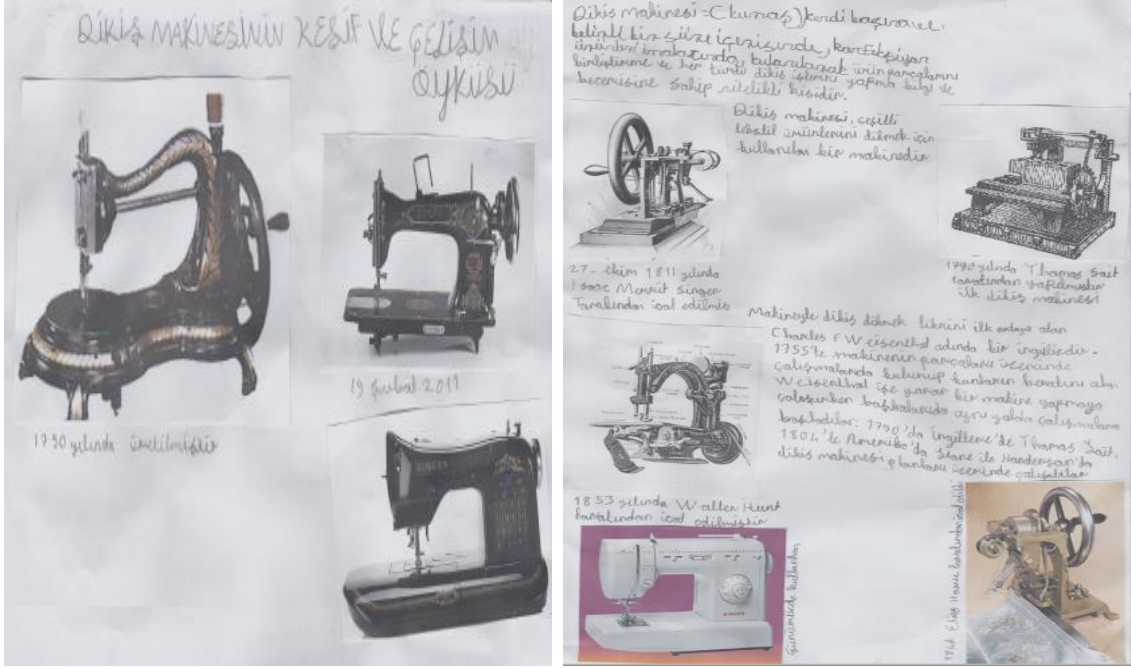 DİKİŞ MAKİNESİNİN KEŞİF VE GELİŞİM
ÖYKÜSÜ
19 şubat 2011
1790 yılında üretilmiştir
SINGER
Dikiş makinesi = (kumaş) kendi başına ve
belirli bir süre içerisinde, konfeksiyon
ürünleri imalatında, kullanılarak ürün parçalarını
birleştirme ve her türlü dikiş işlerini yapma bilgi ve
becerisine sahip nitelikli kişidir.
Dikiş makinesi, çeşitli
tekstil ürünlerini dikmek için
kullanılan bir makinedir
27- ekim 1811 yılında
Isaac Merrit Singer
Tarafından icat edilmiş
1790 yılında Thomas Sait
tarafından yapılmıştır
ilk dikiş makinesi
Makineyle dikiş dikmek fikrini ilk ortaya atan
Charles F Weisenthal adında bir ingilizdir.
1755'te makinenin parçaları üzerinde
çalışmalarda bulunup bunların beratını aldı
Weisenthal işe yarar bir makine yapmaya
çalışırken başkalarıda aynı yolda çalışmalara
başladılar. 1790'da İngiltere'de Thomas Sait,
1804'te Amerika'da Stone ile Henderson'da
dikiş makinesi planları üzerinde çalıştılar
1853 yılında Walter Hunt
tarafından icat edilmiştir
günümüzde kullanılan
1846 Elias Howe tarafından icat edildi